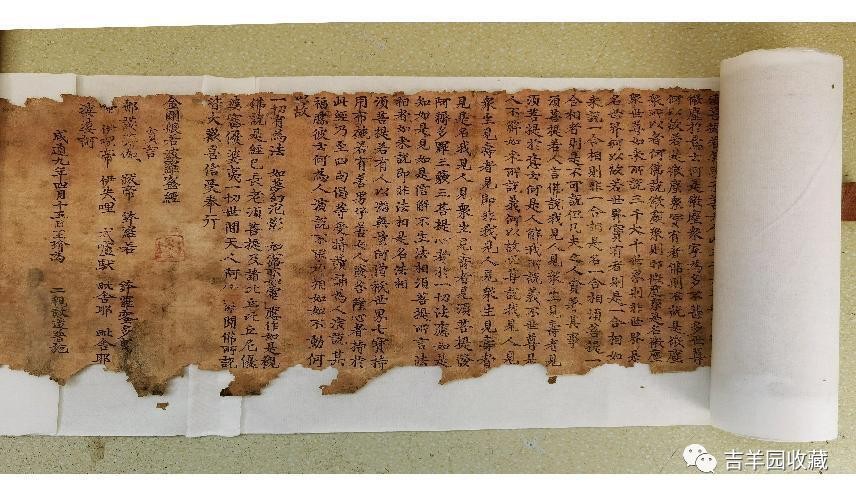 微塵於意云何是微塵眾寧為多不甚多世尊
何以故若是微塵眾實有者佛則不說是微塵
眾所以者何佛說微塵眾則非微塵眾是名微塵
眾世尊如來所說三千大千世界則非世界是
名世界何以故若世界實有者則是一合相如
來說一合相則非一合相是名一合相須菩提一
合相者則是不可說但凡夫之人貪著其事
須菩提若人言佛說我見人見眾生見壽者見
須菩提於意云何是人解我所說義不世尊是
人不解如來所說義何以故世尊說我見人見
眾生見壽者見即非我見人見眾生見壽者
見是名我見人見眾生見壽者見須菩提發
阿耨多羅三藐三菩提心者於一切法應如是
知如是見如是信解不生法相須菩提所言法
相者如來說即非法相是名法相
須菩提若有人以滿無量阿僧祇世界七寶持
用布施若有善男子善女人發菩薩心者持於
此經乃至四句偈等受持讀誦為人演說其
福勝彼云何為人演說不取於相如如不動何
以故
一切有為法 如夢幻泡影 如露亦如電 應作如是觀
佛說是經已長老須菩提及諸比丘比丘尼優
婆塞優婆夷一切世間天人阿 聞佛所說
皆大歡喜信受奉行
金剛般若波羅蜜經
真言
帝 鉢羅若 鉢羅蜜多
伊利帝 伊失哩 毗舍耶 毗舍耶
莎婆訶
咸通九年四月十五日王玠為 二親敬造普施
吉羊园收藏